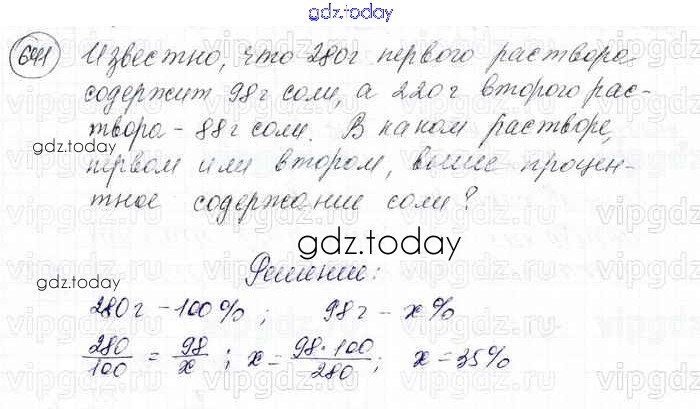 gdz.today
641 Известно, что 280г первого раствора
содержит 98г соли, а 220г второго рас-
твора - 88г соли. В каком растворе,
gdz.today
первом или втором, выше процен-
тное содержание соли?
gdz.today
Решение:
gdz.today
280г - 100% ; 98г - x%
280/100 = 98/x ; x = 98·100/280 ; x = 35%